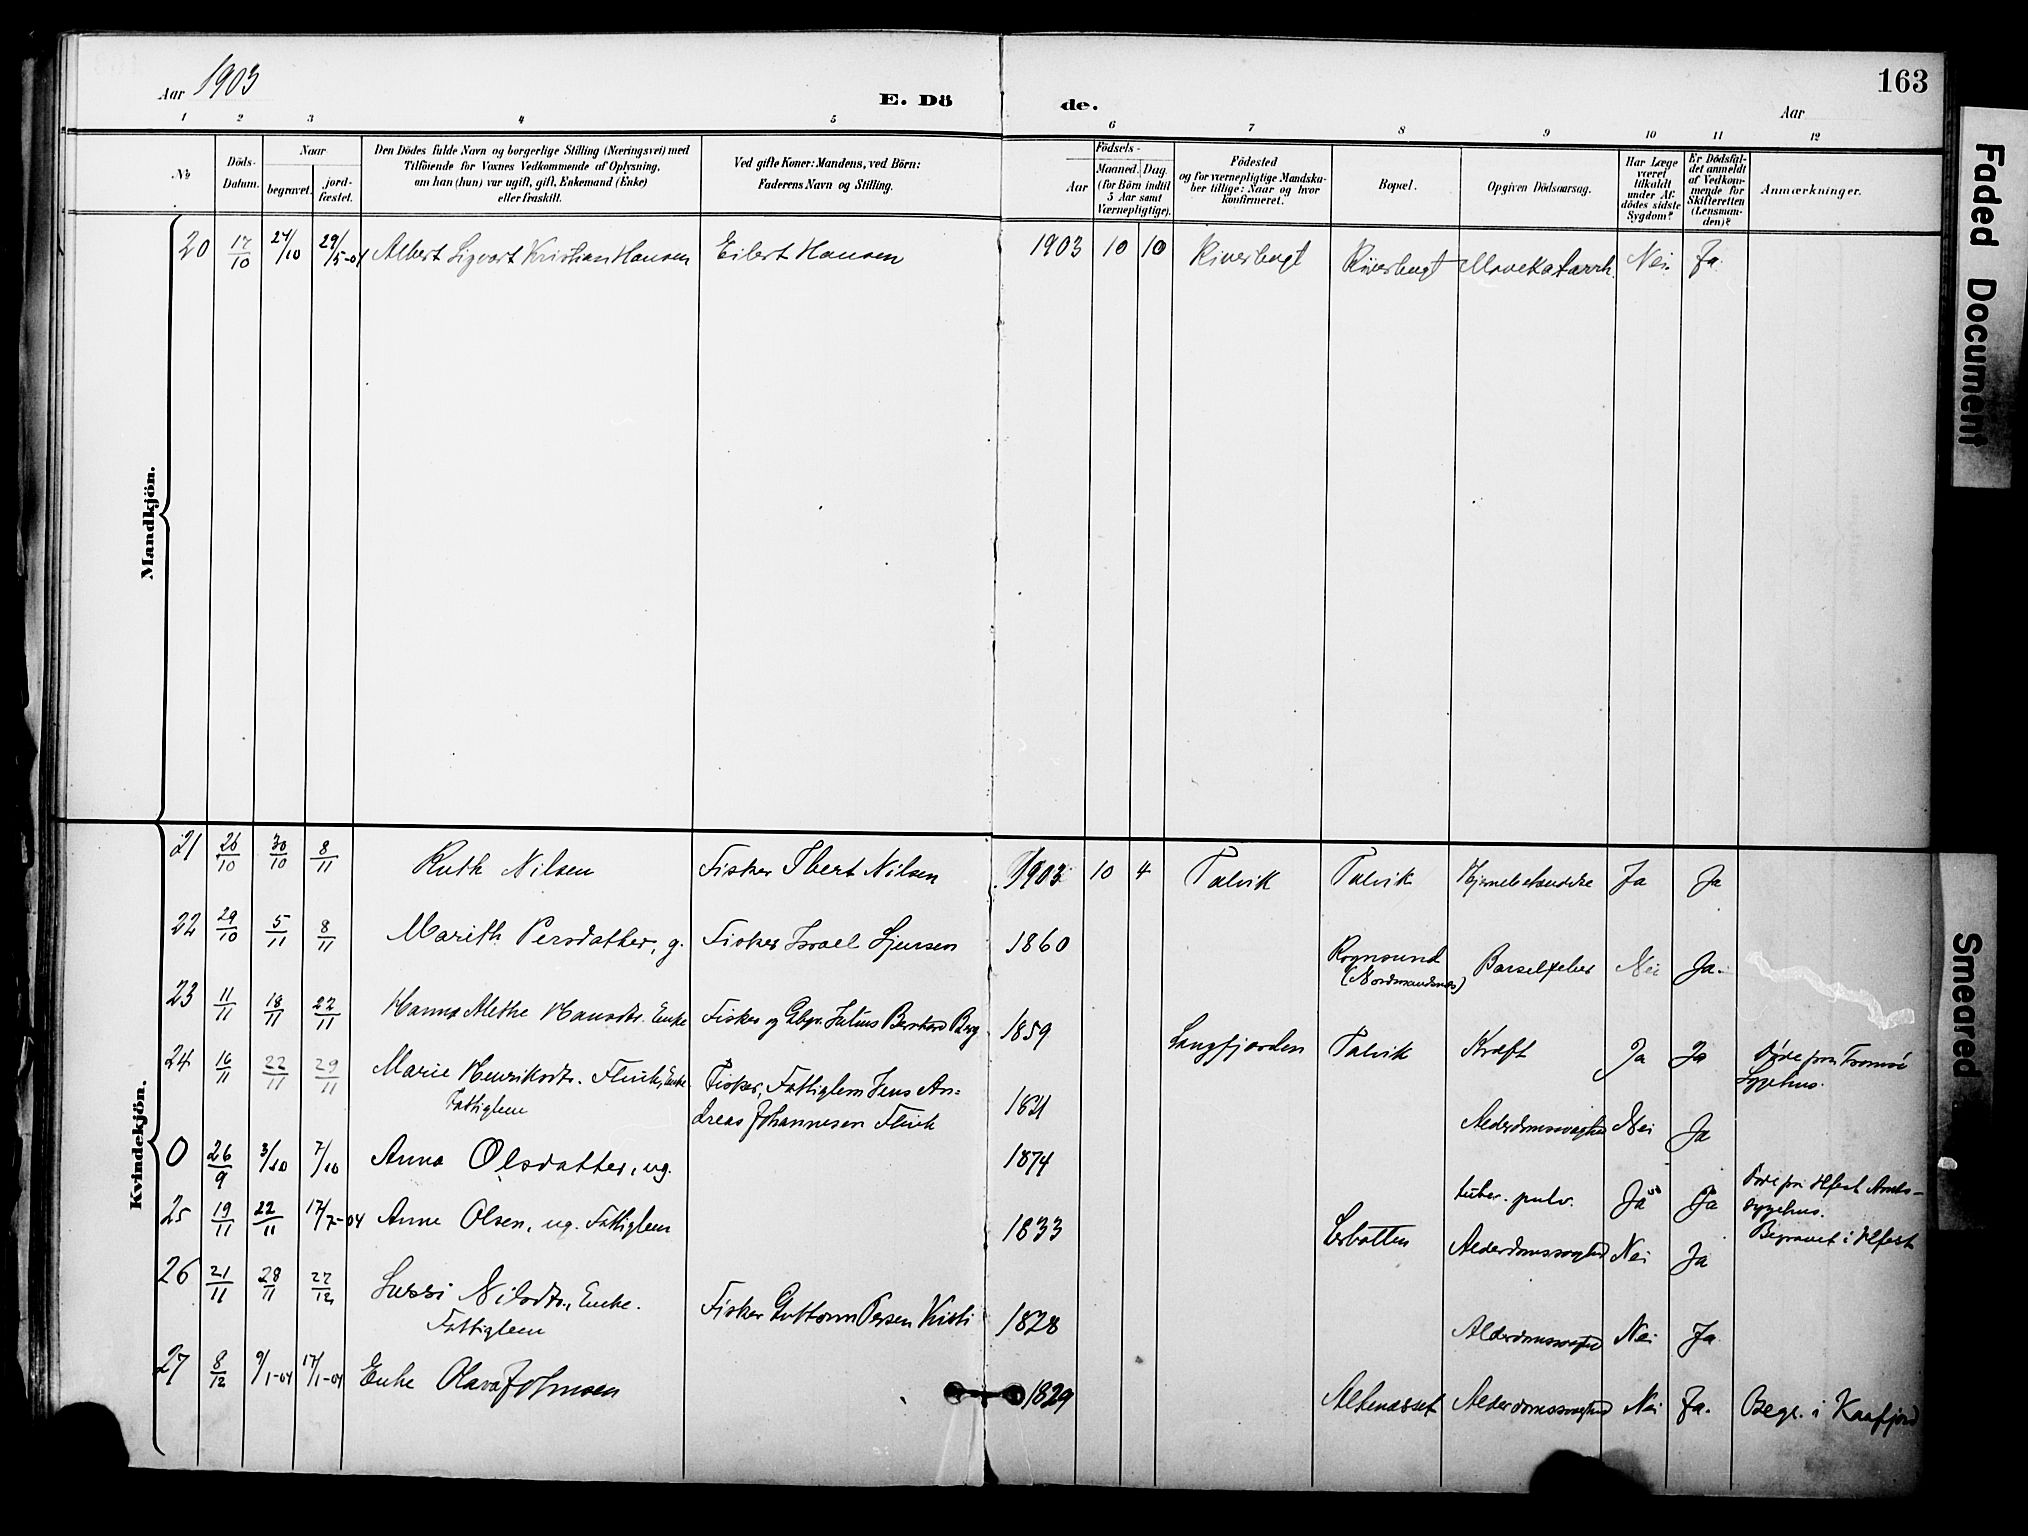 163
Aar 1903
E. Dö de.
Aar
1 2 3 4 5 6 7 8 9 10 11 12
No
Döds-Datum.
Naar
begravet.
jord-fæstet.
Den Dödes fulde Navn og borgerlige Stilling (Næringsvei) med
Tilföiende for Voxnes Vedkommende af Oplysning,
om han (hun) var ugift, gift, Enkemand (Enke)
eller fraskilt.
Ved gifte Koner: Mandens, ved Börn:
Faderens Navn og Stilling.
Födsels-
Aar
Maaned. Dag.
(for Börn indtil
5 Aar samt
Værnepligtige).
Födested
og for værnepligtige Mandska-
ber tillige: Naar og hvor
konfirmeret.
Bopæl.
Opgiven Dödsaarsag.
Har Læge
været
tilkaldt
under Af-
dödes sidste
Sygdom?
Er Dödsfal-
det anmeldt
af Vedkom-
mende for
Skifteretten
(Lensman-
den)?
Anmærkninger.
Mandkjön.
20 17/10 24/10 29/5-04 Albert Sigvart Kristian Hansen Eilert Hansen 1903 10 10 Riverbugt Riverbugt Mavekatarrh. Nei Ja
Kvindekjön.
21 26/10 30/10 8/11 Ruth Nilsen Fisker Ibert Nilsen 1903 10 4 Talvik Talvik Hjernebetændelse Ja Ja
22 29/10 5/11 8/11 Marith Persdatter, g. Fisker Israel Sjursen 1860 Rognsund Barselfeber Nei Ja.
23 11/11 18/11 22/11 Hanna Methe Hansdtr. Enke Fisker og Gbgr. Julius Bernhard Berg. 1859 Langfjorden Talvik Kræft Ja Ja Døde paa Tromsø
Sygehus.
24 16/11 22/11 29/11 Marie Henriksdtr. Flink, Enke Fisker, Fattiglem Jens An-
Fattiglem dreas Johannesen Flink 1821 Alderdomssvaghed Nei Ja
0 26/9 3/10 7/10 Anna Olsdatter, ug. 1874 tuber. pulv. Ja Ja Døde paa Hfest Amts-
sygehus.
Begravet i Hfest
25 19/11 22/11 17/7-04 Anne Olsen, ug. Fattiglem 1833 Lerbotten Alderdomssvaghed Nei Ja
26 21/11 28/11 27/12 Sussi Nilsdtr., Enke. Fisker Guttorm Persen Kisti 1828 Alderdomssvaghed Nei Ja
Fattiglem
27 8/12 9/1-04 17/1-04 Enke Olava Johnsen 1829 Altenæsset Alderdomssvaghed Nei Ja. Begr. i Kaafjord
Faded Document
Smeared